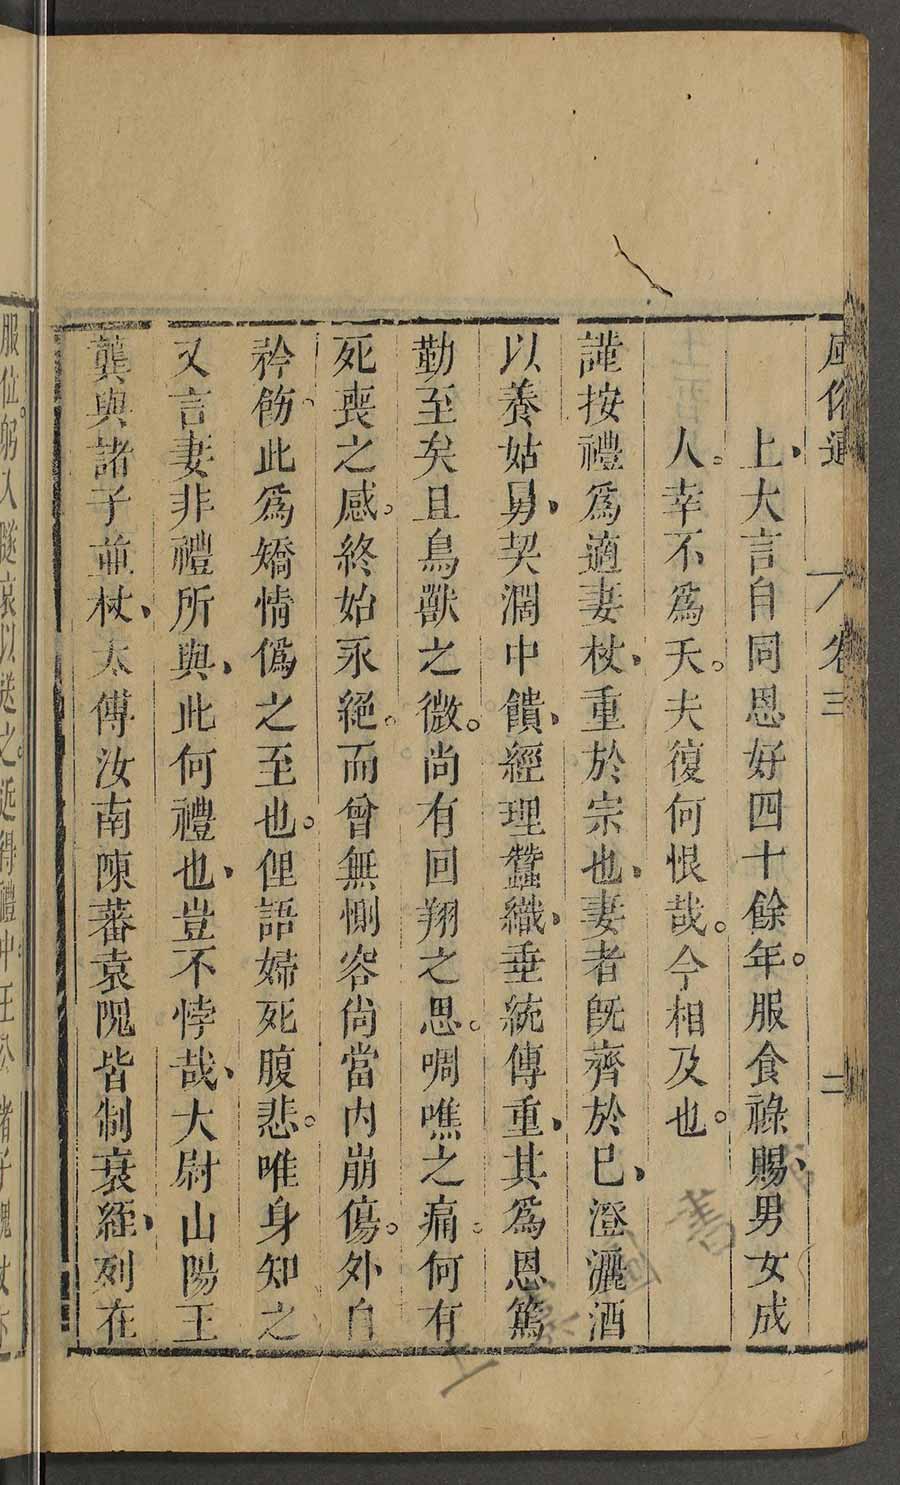 風俗通 卷三 二
上、大言自同恩好四十餘年。服食祿賜、男女成
人。幸不爲夭。夫復何恨哉。今相及也。
謹按禮爲適妻杖、重於宗也、妻者旣齊於已、澄灑酒
以養姑舅、契濶中饋、經理蠶織、垂統傳重、其爲恩篤
勤至矣且鳥獸之微。尚有回翔之思。啁噍之痛。何有
死喪之感。終始永絕。而曾無惻容尙當内崩傷。外自
矜飭、此爲矯情僞之至也。俚語婦死腹悲。唯身知之
又言妻非禮所與、此何禮也、豈不悖哉、大尉山陽王
龔與諸子並杖、太傅汝南陳蕃袁隗皆制衰絰、列在
服位。躬入隧哀以送之。近得禮中王公諸子